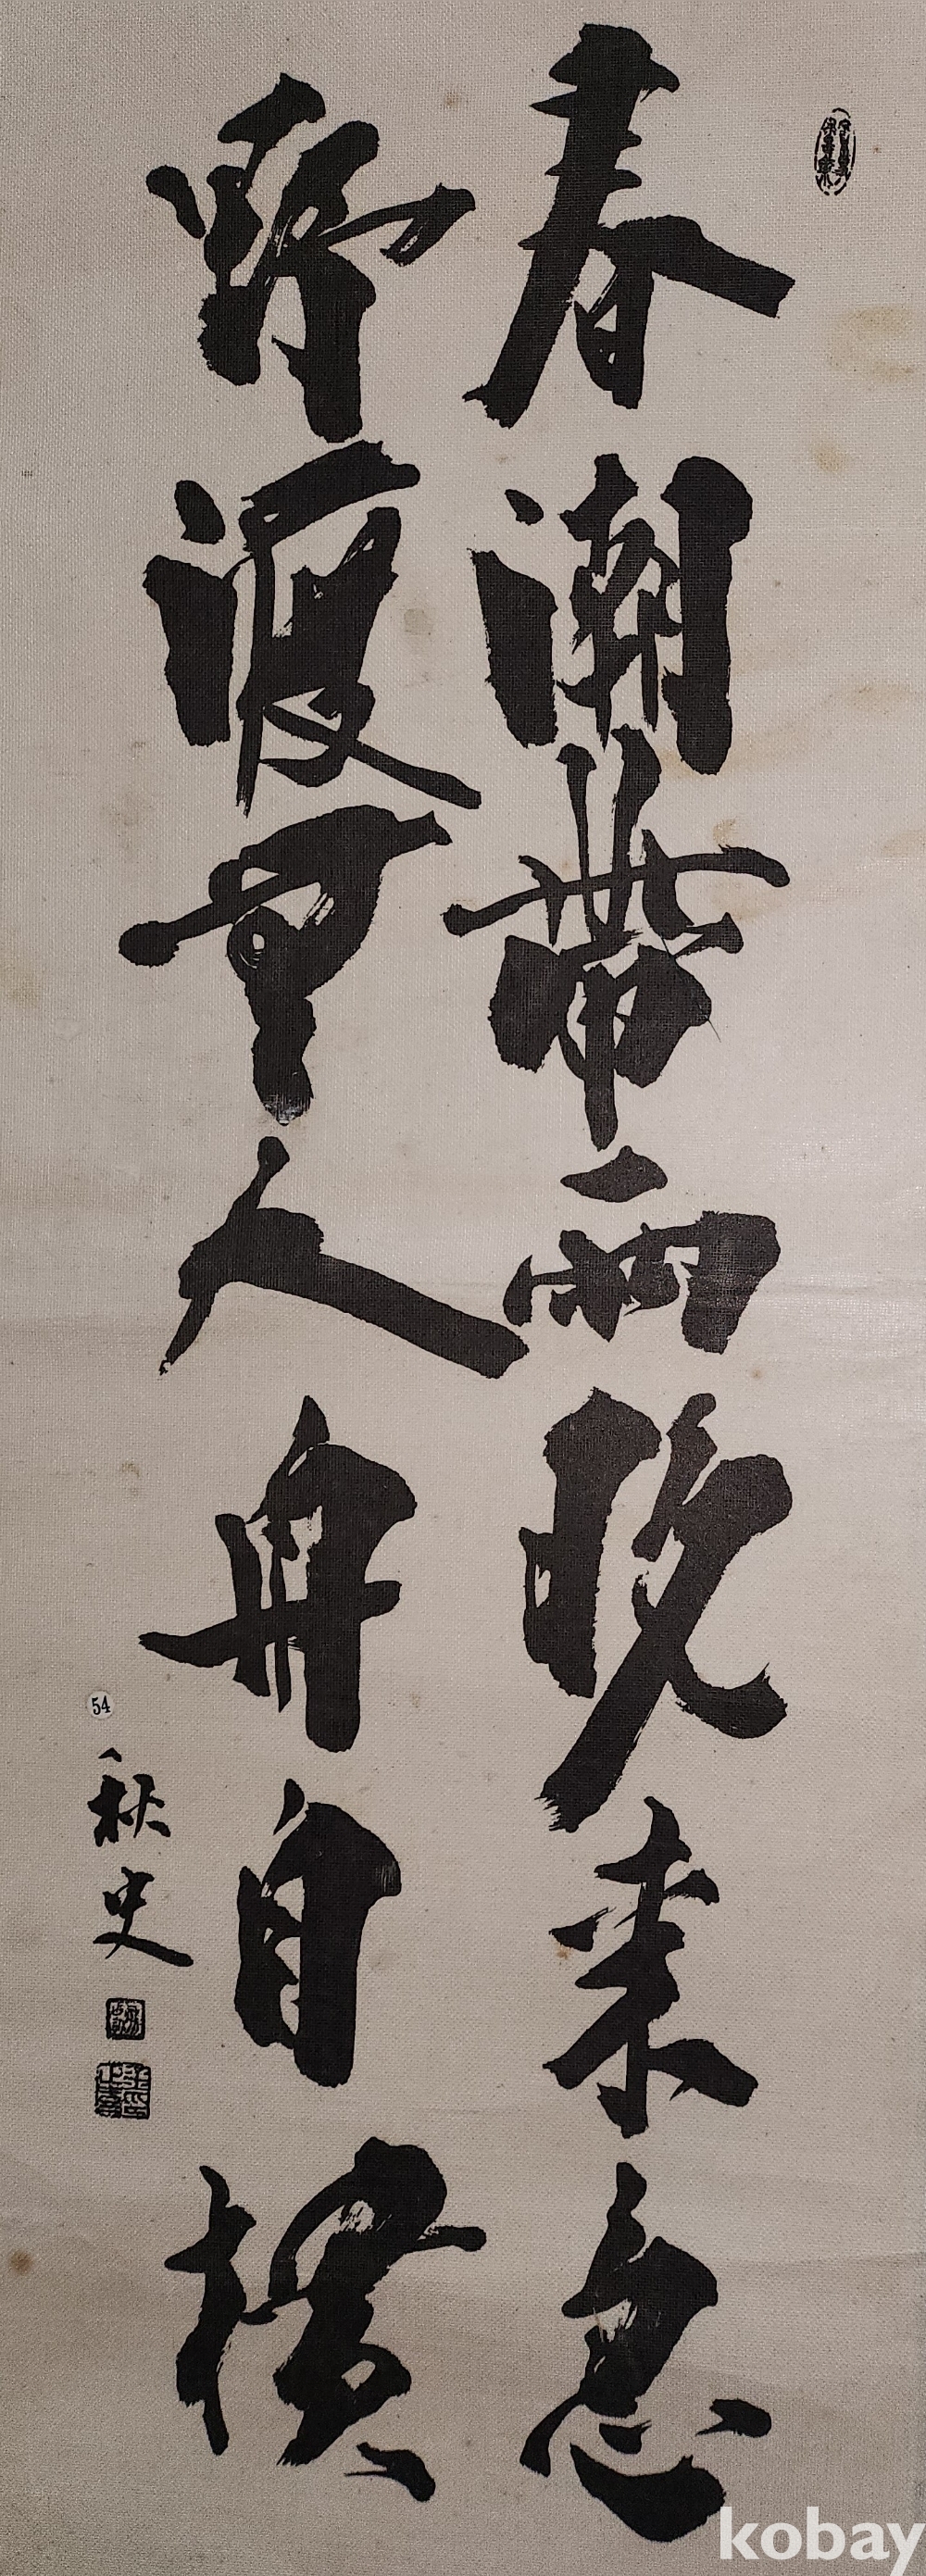 春潮帶雨晚来急
野渡無人舟自橫
秋史
54
kobay